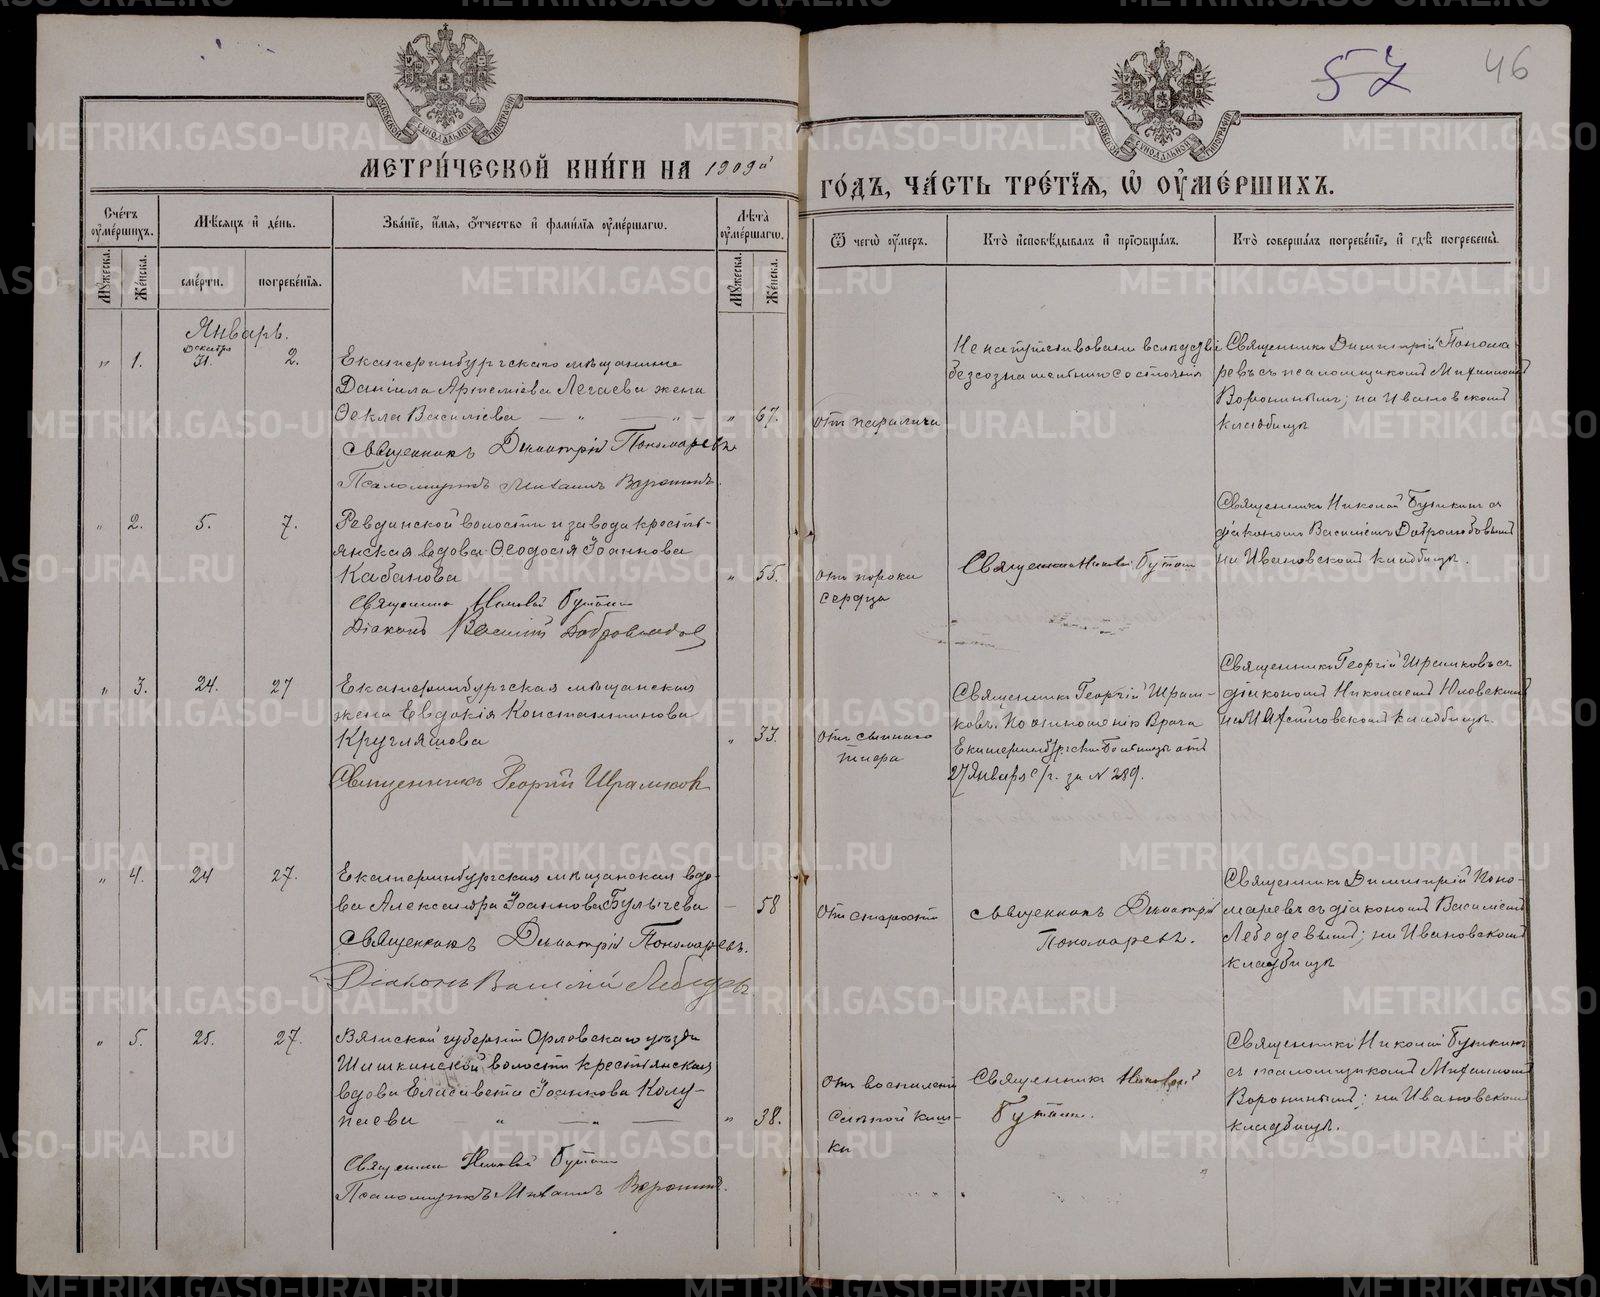 57
46
МОСКОВСКОЙ СѴНОДАЛЬНОЙ ТИПОГРАФІИ
МОСКОВСКОЙ СѴНОДАЛЬНОЙ ТИПОГРАФІИ
МЕТРИ́ЧЕСКОЙ КНИ́ГИ НА 1909й
ГО́ДЪ, ЧА́СТЬ ТРЕ́ТЇѦ, Ѡ ОУ҆МЕ́РШИХЪ.
Сче́тъ оу҆ме́ршихъ.
Мѣ́сяцъ и҆ де́нь.
Зва́нїе, и҆́мя, ѻ҆́тчество и҆ фами́лїя оу҆ме́ршагѡ.
Лѣ́та оу҆ме́ршагѡ.
Ѿ чегѡ̀ оу҆́меръ.
Кто̀ и҆сповѣ́дывалъ и҆ прїѡбща́лъ.
Кто̀ соверша́лъ погребе́нїе, и҆ гдѣ̀ погребены̀.
Му́жеска.
Же́нска.
сме́рти.
погребе́нїя.
Му́жеска.
Же́нска.
Январь.
" 1.
Декабря 31.
2.
Екатеринбургскаго мѣщанина
Даніила Артеміева Легаева жена
Ѳекла Василіева — " — " —
" 67.
Священникъ Димитрій Пономаревъ
Псаломщикъ Михаилъ Воронинъ.
отъ паралича
Не напутствована вслѣдствіе
безсознательнаго состоянія
Священникъ Димитрій Понома-
ревъ съ псаломщикомъ Михаиломъ
Воронинымъ; на Ивановскомъ
кладбищѣ
" 2.
5.
7.
Ревдинской волости и завода кресть-
янская вдова Ѳеодосія Іоаннова
Кабанова
" 55.
Священникъ Николай Буткинъ
Діаконъ Василій Добролюбовъ
отъ порока
сердца
Священникъ Николай Буткинъ
Священникъ Николай Буткинъ съ
діакономъ Василіемъ Добролюбовымъ
на Ивановскомъ кладбищѣ.
" 3.
24.
27
Екатеринбургская мѣщанская
жена Евдокія Константинова
Кругляшова
" 33.
Священникъ Георгій Шрамковъ
отъ сыпного
тифа
Священникъ Георгій Шрам-
ковъ. По отношенію Врача
Екатеринбургской Больницы отъ
27 Января с/г. за № 289.
Священникъ Георгій Шрамковъ съ
діакономъ Николаемъ Юловскимъ
на Михайловскомъ кладбищѣ.
" 4.
24
27.
Екатеринбургская мѣщанская вдо-
ва Александра Іоаннова Булычева
— 58
Священникъ Димитрій Пономаревъ.
Діаконъ Василій Лебедевъ
отъ старости
Священникъ Димитрій
Пономаревъ.
Священникъ Димитрій Поно-
маревъ съ діакономъ Василіемъ
Лебедевымъ; на Ивановскомъ
кладбищѣ
" 5.
25.
27.
Вятской губерніи Орловскаго уѣзда
Шишкинской волости крестьянская
вдова Елисавета Іоаннова Колу-
паева — " — " —
" 38.
Священникъ Николай Буткинъ
Псаломщикъ Михаилъ Воронинъ.
отъ воспаленія
слѣпой киш-
ки
Священникъ Николай
Буткинъ.
Священникъ Николай Буткинъ
съ псаломщикомъ Михаиломъ
Воронинымъ; на Ивановскомъ
кладбищѣ.
METRIKI.GASO-URAL.RU